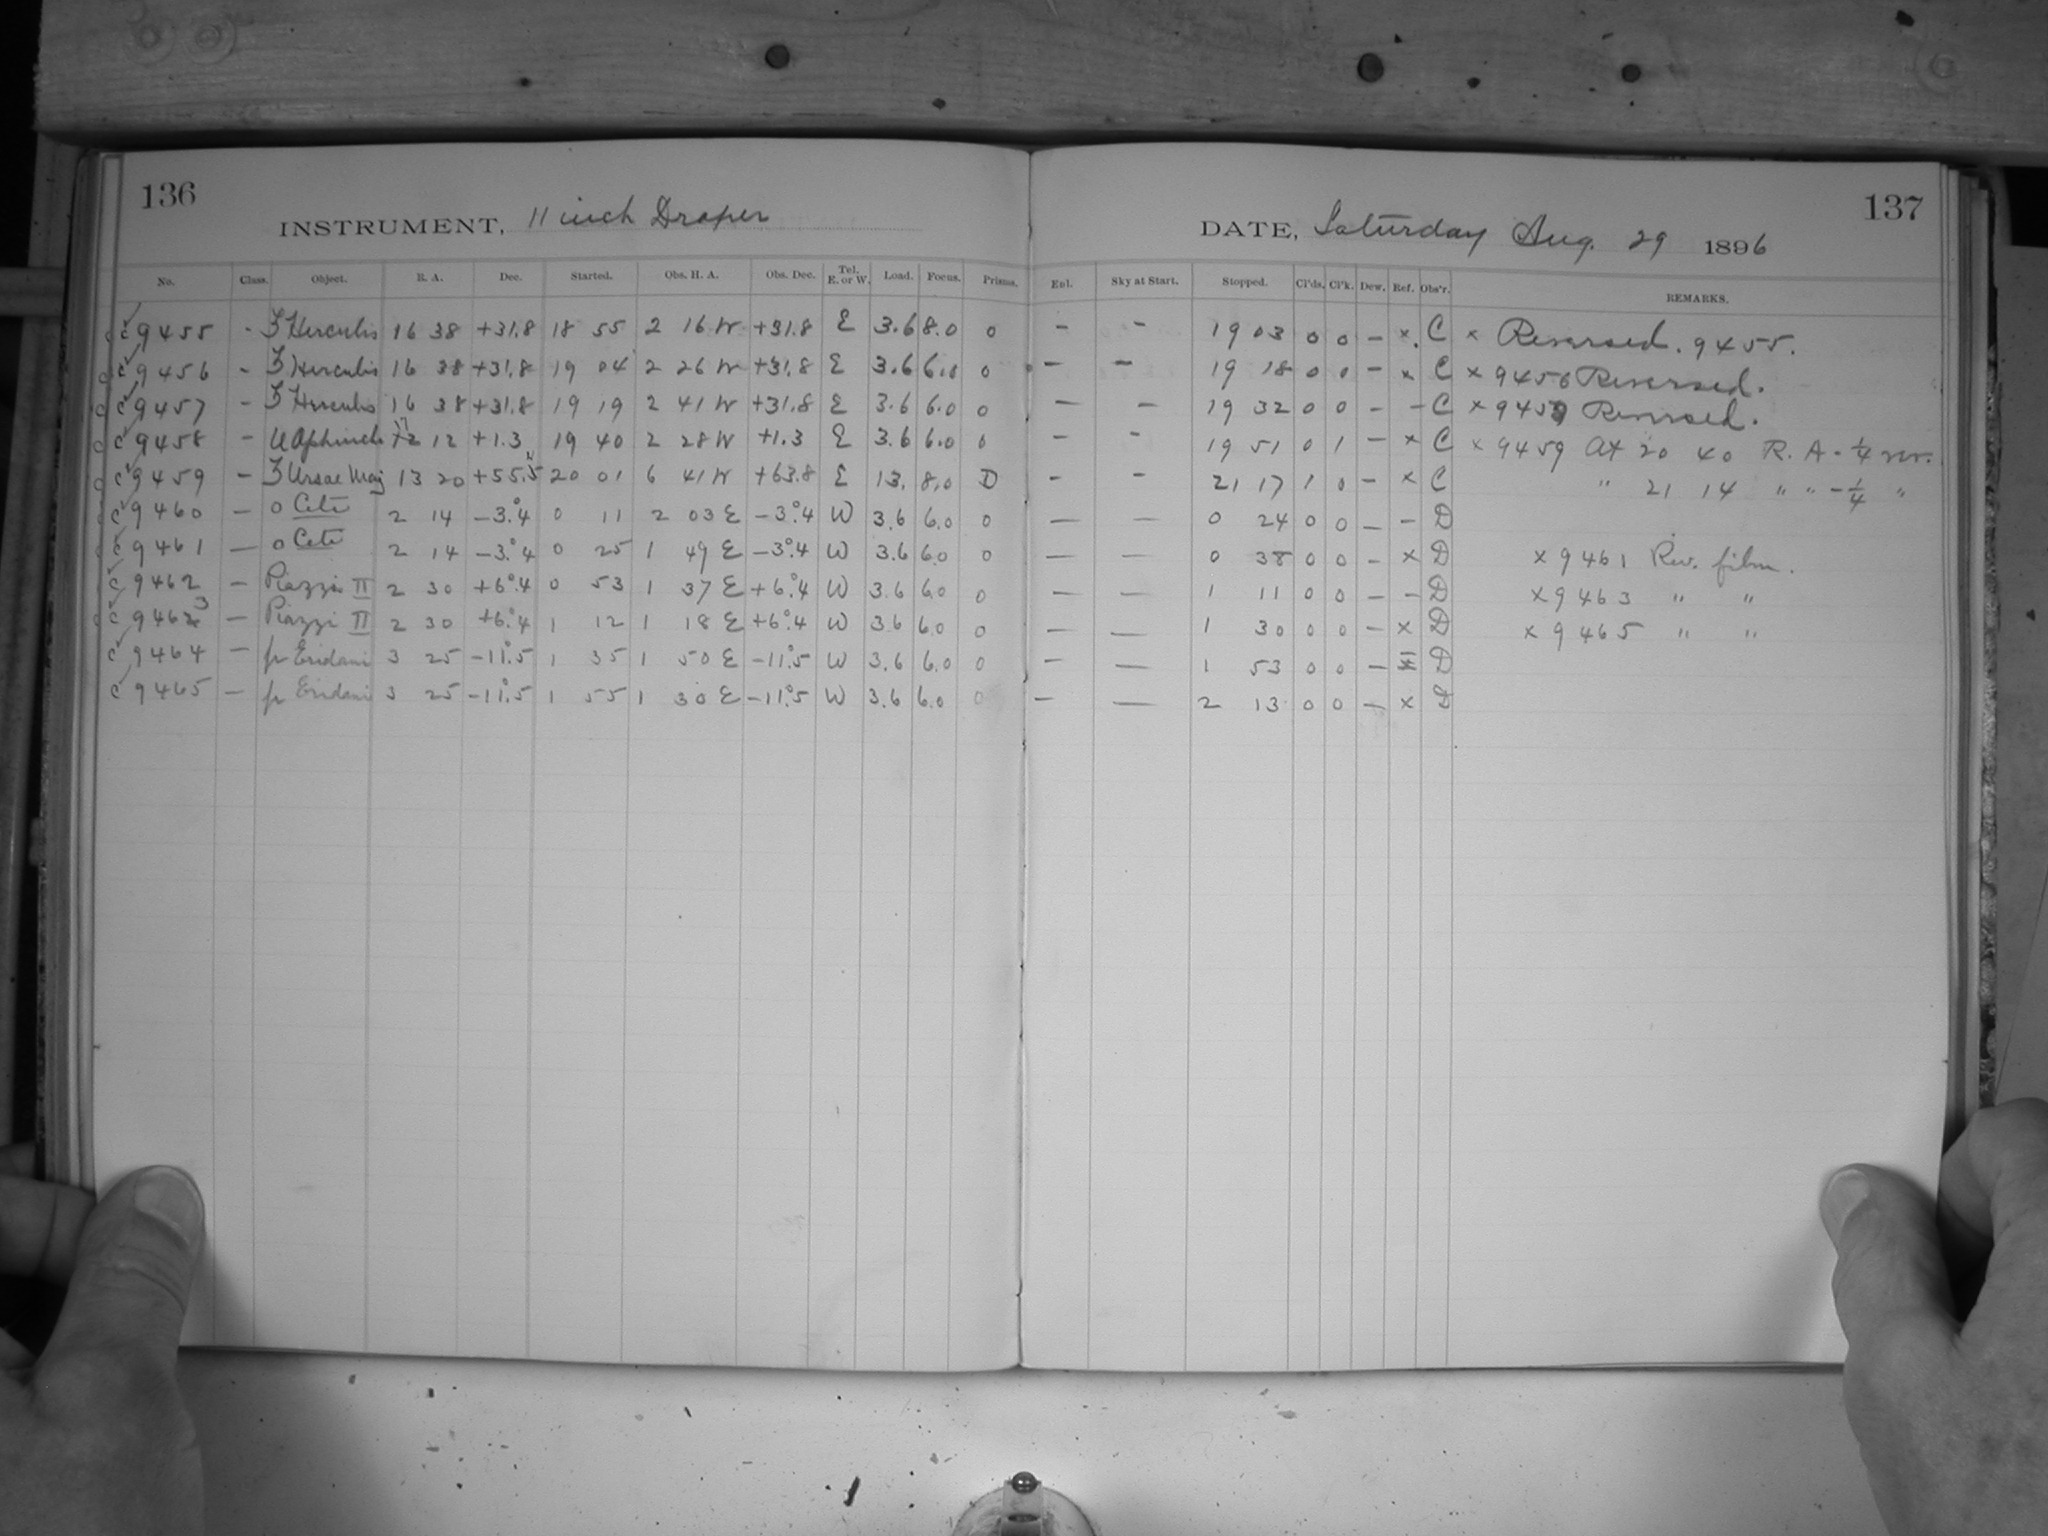 136
INSTRUMENT, 11 inch Draper
No. Class. Object. R. A. Dec. Started. Obs. H. A. Obs. Dec. Tel. E. or W. Load. Focus. Prisms.
c 9455 - ζ Herculis 16 38 +31.8 18 55 2 16 W +31.8 E 3.6 8.0 0
c 9456 - ζ Herculis 16 38 +31.8 19 04 2 26 W +31.8 E 3.6 6.0 0
c 9457 - ζ Herculis 16 38 +31.8 19 19 2 41 W +31.8 E 3.6 6.0 0
c 9458 - U Ophiuchi 17 12 +1.3 19 40 2 28 W +1.3 E 3.6 6.0 0
c 9459 - ζ Ursae Maj 13 20 +55.5 20 01 6 41 W +63.8 E 13. 8.0 D
c 9460 - o Ceti 2 14 -3°.4 0 11 2 03 E -3°.4 W 3.6 6.0 0
c 9461 - o Ceti 2 14 -3°.4 0 25 1 49 E -3°.4 W 3.6 6.0 0
c 9462 - Piazzi II 2 30 +6°.4 0 53 1 37 E +6°.4 W 3.6 6.0 0
c 9463 - Piazzi II 2 30 +6°.4 1 12 1 18 E +6°.4 W 3.6 6.0 0
c 9464 - fr Eridani 3 25 -11°.5 1 35 1 50 E -11°.5 W 3.6 6.0 0
c 9465 - fr Eridani 3 25 -11°.5 1 55 1 30 E -11°.5 W 3.6 6.0 0
137
DATE, Saturday Aug. 29 1896
Sky at Start. Stopped. Cl'ds. Cl'k. Dew. Ref. Obs'r. REMARKS.
- - 19 03 0 0 - x. C x Reversed. 9455.
- - 19 18 0 0 - x C x 9456 Reversed.
- - 19 32 0 0 - - C x 9457 Reversed.
- - 19 51 0 1 - x C x 9459 At 20 40 R. A - 1/4 rev.
- - 21 17 1 0 - x C " 21 14 " " - 1/4 "
- - 0 24 0 0 - - D
- - 0 38 0 0 - x D x 9461 Rev. film.
- - 1 11 0 0 - - D x 9463 " "
- - 1 30 0 0 - x D x 9465 " "
- - 1 53 0 0 - - D
- - 2 13 0 0 - x D